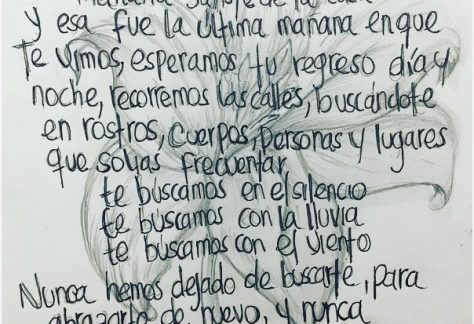 mañana saliste de la casa
Y esa fue la última mañana en que
te vimos, esperamos tu regreso día y
noche, recorremos las calles, buscándote
en rostros, cuerpos, personas y lugares
que solías frecuentar
te buscamos en el silencio
te buscamos con la lluvia
te buscamos con el viento
Nunca hemos dejado de buscarte, para
abrazarte de nuevo, y nunca